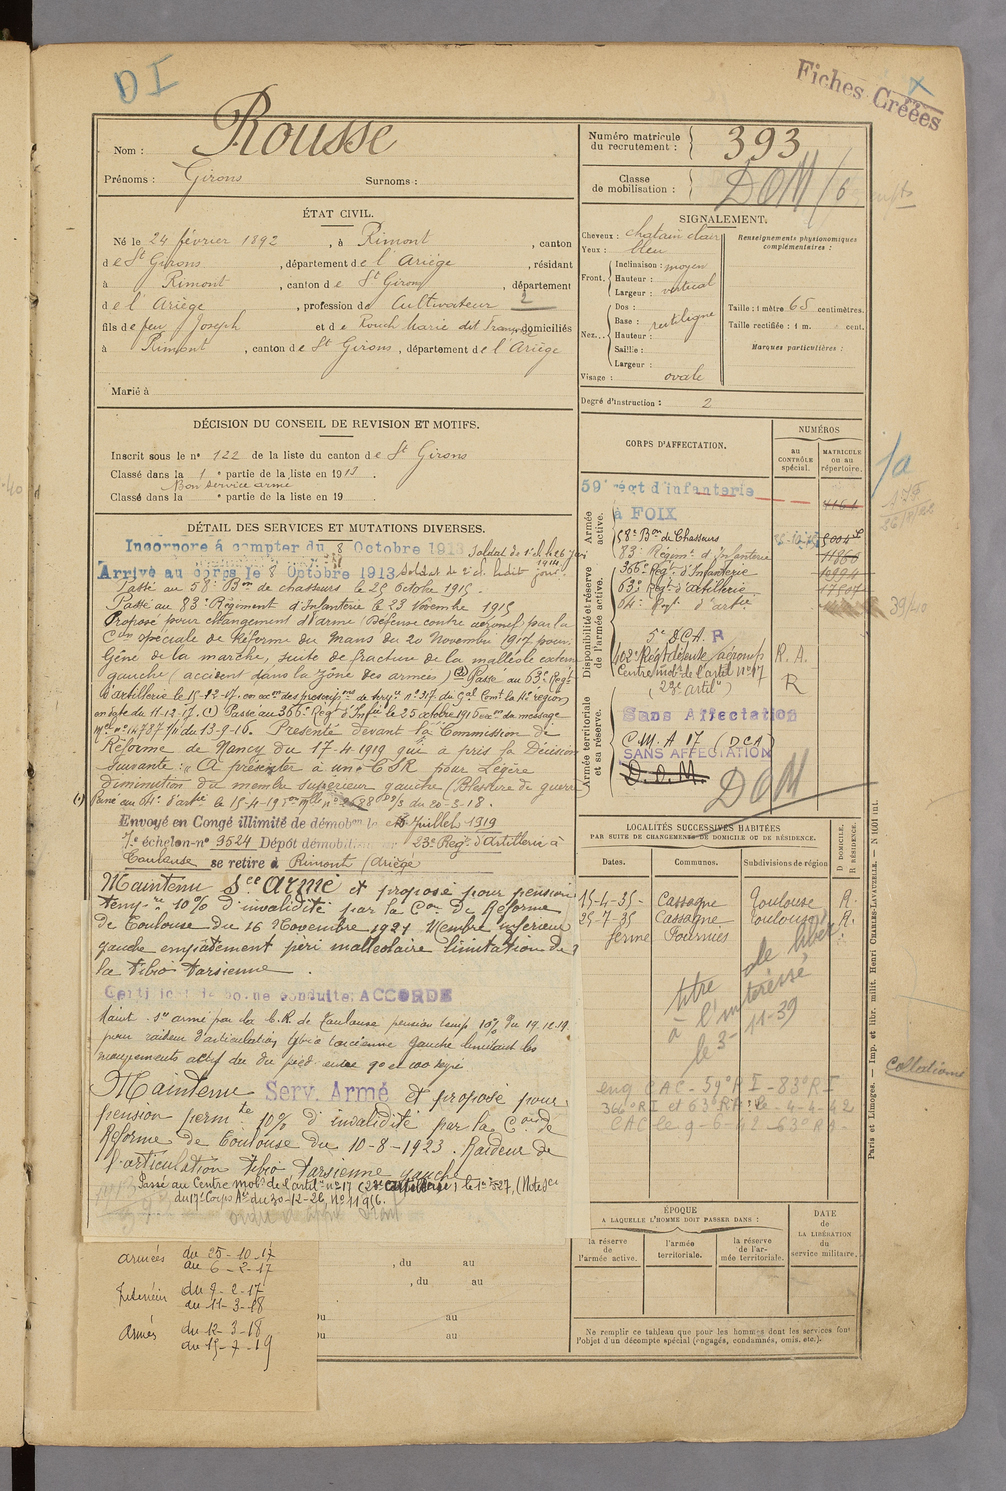 DI
Fiches Créées
Nom : Rousse
Prénoms : Girons Surnoms :
Numéro matricule du recrutement : 393
Classe de mobilisation : DOM/6
ÉTAT CIVIL.
Né le 24 février 1892, à Rimont, canton
de St Girons, département de l'Ariège, résidant
à Rimont, canton de St Girons, département
de l'Ariège, profession de Cultivateur 2
fils de feu Joseph et de Rouch Marie dit Française domiciliés
à Rimont, canton de St Girons, département de l'Ariège
Marié à
SIGNALEMENT.
Cheveux : chatain clair
Yeux : bleu
Front. Inclinaison : moyen
Hauteur :
Largeur : vertical
Nez... Dos :
Base : rectiligne
Hauteur :
Saillie :
Largeur :
Visage : ovale
Renseignements physionomiques complémentaires :
Taille : 1 mètre 65 centimètres.
Taille rectifiée : 1 m. cent.
Marques particulières :
Degré d'instruction : 2
DÉCISION DU CONSEIL DE REVISION ET MOTIFS.
Inscrit sous le no 122 de la liste du canton de St Girons
Classé dans la 1e partie de la liste en 1913.
Bon service armé
Classé dans la e partie de la liste en 19
DÉTAIL DES SERVICES ET MUTATIONS DIVERSES.
Incorporé à compter du 8 Octobre 1913
Arrivé au corps le 8 Octobre 1913 Soldat de 2e cl. ledit jour.
Passé au 58e Bon de chasseurs le 25 Octobre 1915.
Passé au 83e Régiment d'Infanterie le 23 Novembre 1915
Proposé pour changement d'arme (Défense contre aéronef) par la
Con spéciale de Réforme du Mans du 20 Novembre 1917 pour
Gêne de la marche, suite de fracture de la malléole externe
gauche (accident dans la zône des armées) Passé au 63e Régt
d'artillerie le 15-12-17.
en date du 11-12-17. (1) Passé au 366e Régt d'Infie le 25 octobre 1916 du message
du 13-9-16. Présenté devant la Commission de
Réforme de Nancy du 17-4-1919 qui a pris la Décision
suivante : "A présenter à une CSR pour Légère
diminution du membre supérieur gauche (Blessure de guerre)
Passé au 64e d'artie le 15-4-19 du 20-3-18.
Envoyé en Congé illimité de démobon le 15 Juillet 1919
7e échelon no 9524 Dépôt démobilisateur 23e Régt d'Artillerie à
Toulouse se retire à Rimont (Ariège)
Maintenu Sce armé et proposé pour pension
tempre 10% d'invalidité par la Con de Réforme
de Toulouse du 16 Novembre 1921 Membre inférieur
gauche empâtement péri malléolaire limitation de
la tibio tarsienne.
Certificat de bonne conduite: ACCORDÉ
Maint. Sce armé par la C.R. de Toulouse pension temp 10% du 19.12.19
pour raideur d'articulation tibio tarsienne gauche limitant les
mouvements actif du pied entre 90 et 100 degrés
Maintenu Serv. Armé et proposé pour
pension permte 10% d'invalidité par la Con de
Réforme de Toulouse du 10-8-1923. Raideur de
l'articulation tibio tarsienne gauche
Passé au Centre mobe de l'artie no 17 (23e artillerie) le 1-5-27, (Note
du 17e Corps Ae du 30-12-26, No 11.956.
armées du 25-10-17
au 6-2-17
Intérieur du 9-2-17
au 11-3-18
Armées du 12-3-18
au 15-7-19
, du au
, du au
Du au
Du au
CORPS D'AFFECTATION.
NUMÉROS
au CONTRÔLE spécial.
MATRICULE ou au répertoire.
Armée active.
59e régt d'infanterie
à FOIX
58e Bon de Chasseurs
83e Régimt d'Infanterie
Disponibilité et réserve de l'armée active.
366e Régt d'Infanterie
63e Régt d'artillerie
64e Régt d'artie
39/40
5e DCA. R
402e Régt défense aéronefs R. A.
Centre mobe de l'artie no 17 R
(23e artie)
Armée territoriale et sa réserve.
Sans Affectation
C.M.A 17 (DCA)
SANS AFFECTATION
D.O.M.
DOM
LOCALITÉS SUCCESSIVES HABITÉES
PAR SUITE DE CHANGEMENTS DE DOMICILE OU DE RÉSIDENCE.
Dates. Communes. Subdivisions de région D DOMICILE. R RÉSIDENCE.
15-4-35- Cassagne Toulouse R.
25-7-35 Cassagne Toulouse R.
ferme Fourniés
titre de libér.
à l'intéressé
le 3-11-39
Collationné
eng CAC - 59e RI - 83e RI
366e RI et 63e RA : le -4-4-42
CAC le 9-6-42 63e RA-
ÉPOQUE
A LAQUELLE L'HOMME DOIT PASSER DANS :
la réserve de l'armée active.
l'armée territoriale.
la réserve de l'armée territoriale.
DATE de LA LIBÉRATION du service militaire.
Ne remplir ce tableau que pour les hommes dont les services font
l'objet d'un décompte spécial (engagés, condamnés, omis, etc.).
Paris et Limoges. — Imp. et libr. milit. Henri CHARLES-LAVAUZELLE. — N 1601 int.